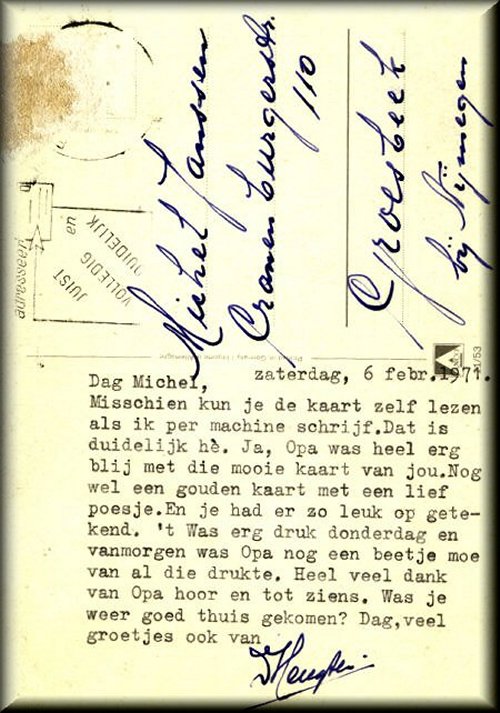 Michel Janssen
Cranenburgerstr.
110
Groesbeek
bij Nijmegen
adresseer
JUIST
VOLLEDIG en
DUIDELIJK
zaterdag, 6 febr.1971.
Dag Michel,
Misschien kun je de kaart zelf lezen
als ik per machine schrijf.Dat is
duidelijk hè. Ja, Opa was heel erg
blij met die mooie kaart van jou.Nog
wel een gouden kaart met een lief
poesje.En je had er zo leuk op gete-
kend. 't Was erg druk donderdag en
vanmorgen was Opa nog een beetje moe
van al die drukte. Heel veel dank
van Opa hoor en tot ziens. Was je
weer goed thuis gekomen? Dag,veel
groetjes ook van